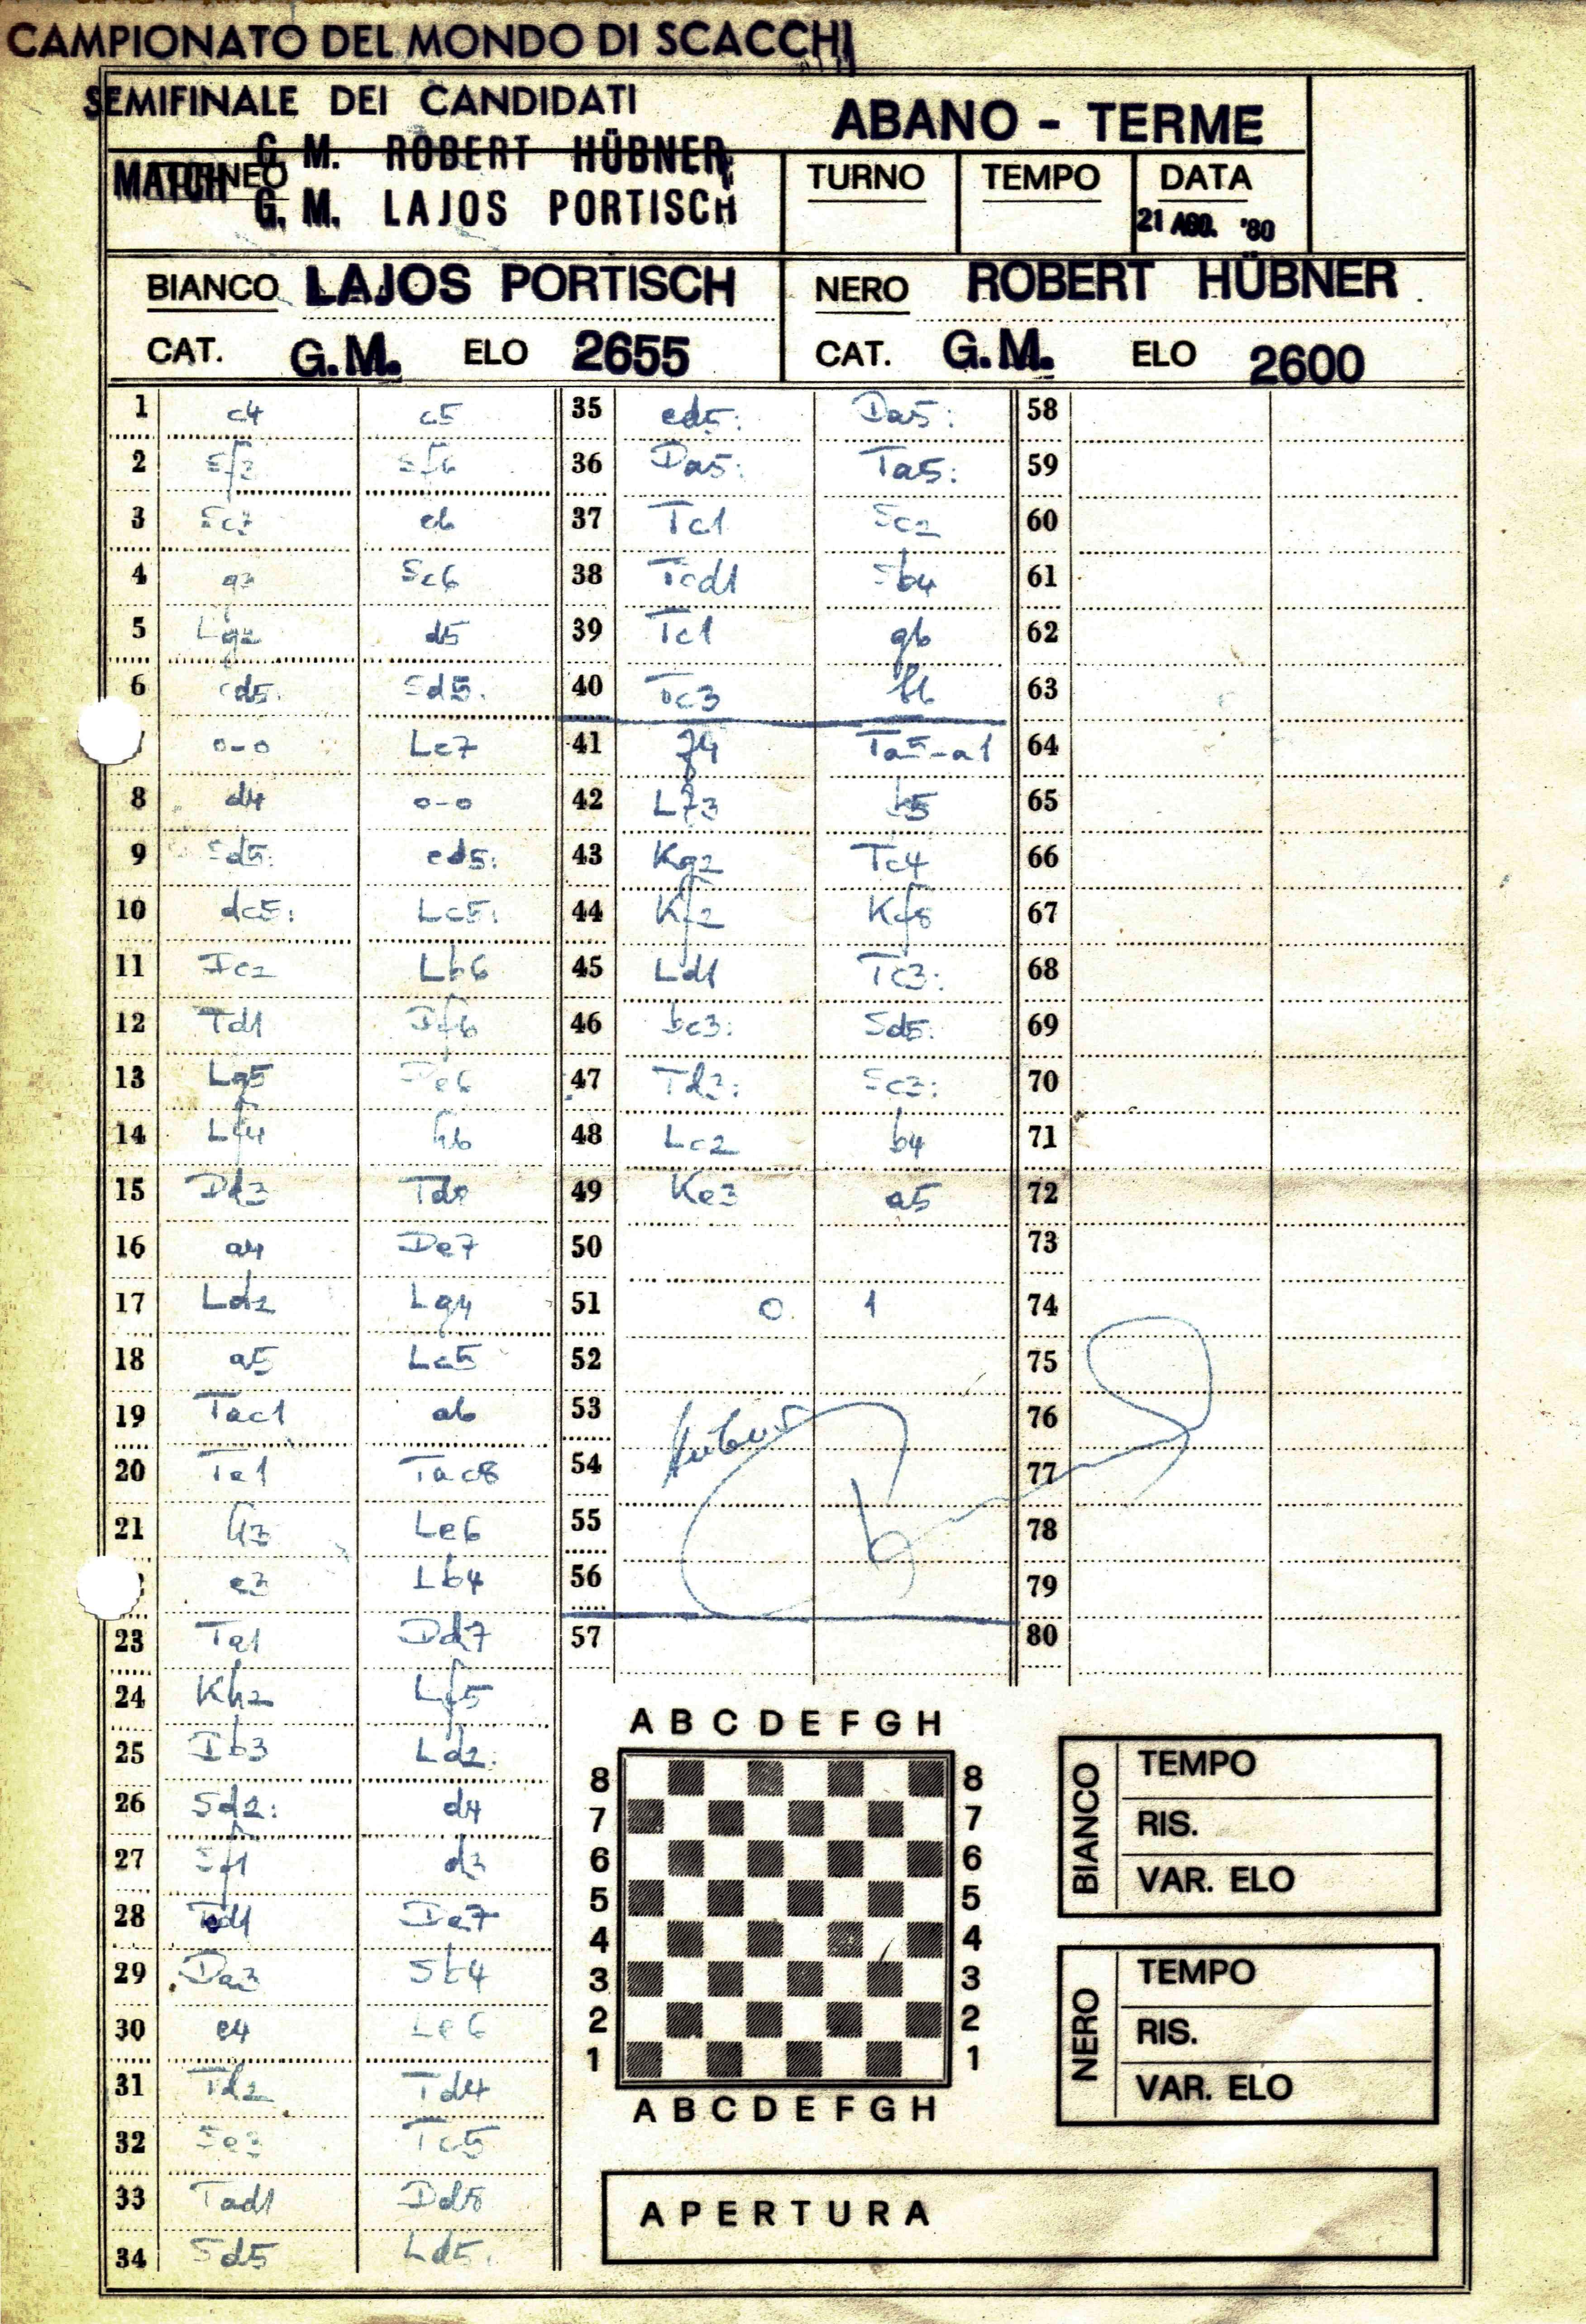 CAMPIONATO DEL MONDO DI SCACCHI
SEMIFINALE DEI CANDIDATI
ABANO - TERME
G. M. ROBERT HÜBNER
MATCH
G. M. LAJOS PORTISCH
TURNO TEMPO DATA
21 AGO. '80
BIANCO LAJOS PORTISCH NERO ROBERT HÜBNER
CAT. G.M. ELO 2655 CAT. G.M. ELO 2600
1 c4 c5
2 Sf3 Sf6
3 Sc3 e6
4 g3 Sc6
5 Lg2 d5
6 cd5: Sd5:
0-0 Le7
8 d4 0-0
9 Sd5: ed5:
10 dc5: Lc5:
11 Dc2 Lb6
12 Td1 Df6
13 Lg5 De6
14 Lf4 h6
15 Dd3 Td8
16 a4 De7
17 Ld2 Lg4
18 a5 Lc5
19 Tac1 a6
20 Te1 Tac8
21 h3 Le6
e3 Lb4
23 Ta1 Dd7
24 Kh2 Lf5
25 Db3 Ld2:
26 Sd2: d4
27 Sf1 d3
28 Ted1 De7
29 Da3 Sb4
30 e4 Le6
31 Td2 Td4
32 Se3 Tc5
33 Tad1 Dd8
34 Sd5 Ld5:
35 ed5: Da5:
36 Da5: Ta5:
37 Tc1 Sc2
38 Tcd1 Sb4
39 Tc1 g6
40 Tc3 f6
41 f4 Ta5-a1
42 Lf3 b5
43 Kg2 Tc4
44 Kf2 Kf8
45 Ld1 Tc3:
46 bc3: Sd5:
47 Td3: Sc3:
48 Lc2 b4
49 Ke3 a5
50
51 0 1
52
53
54
55
56
57
58
59
60
61
62
63
64
65
66
67
68
69
70
71
72
73
74
75
76
77
78
79
80
A B C D E F G H
8 8
7 7
6 6
5 5
4 4
3 3
2 2
1 1
A B C D E F G H
BIANCO
TEMPO
RIS.
VAR. ELO
NERO
TEMPO
RIS.
VAR. ELO
APERTURA